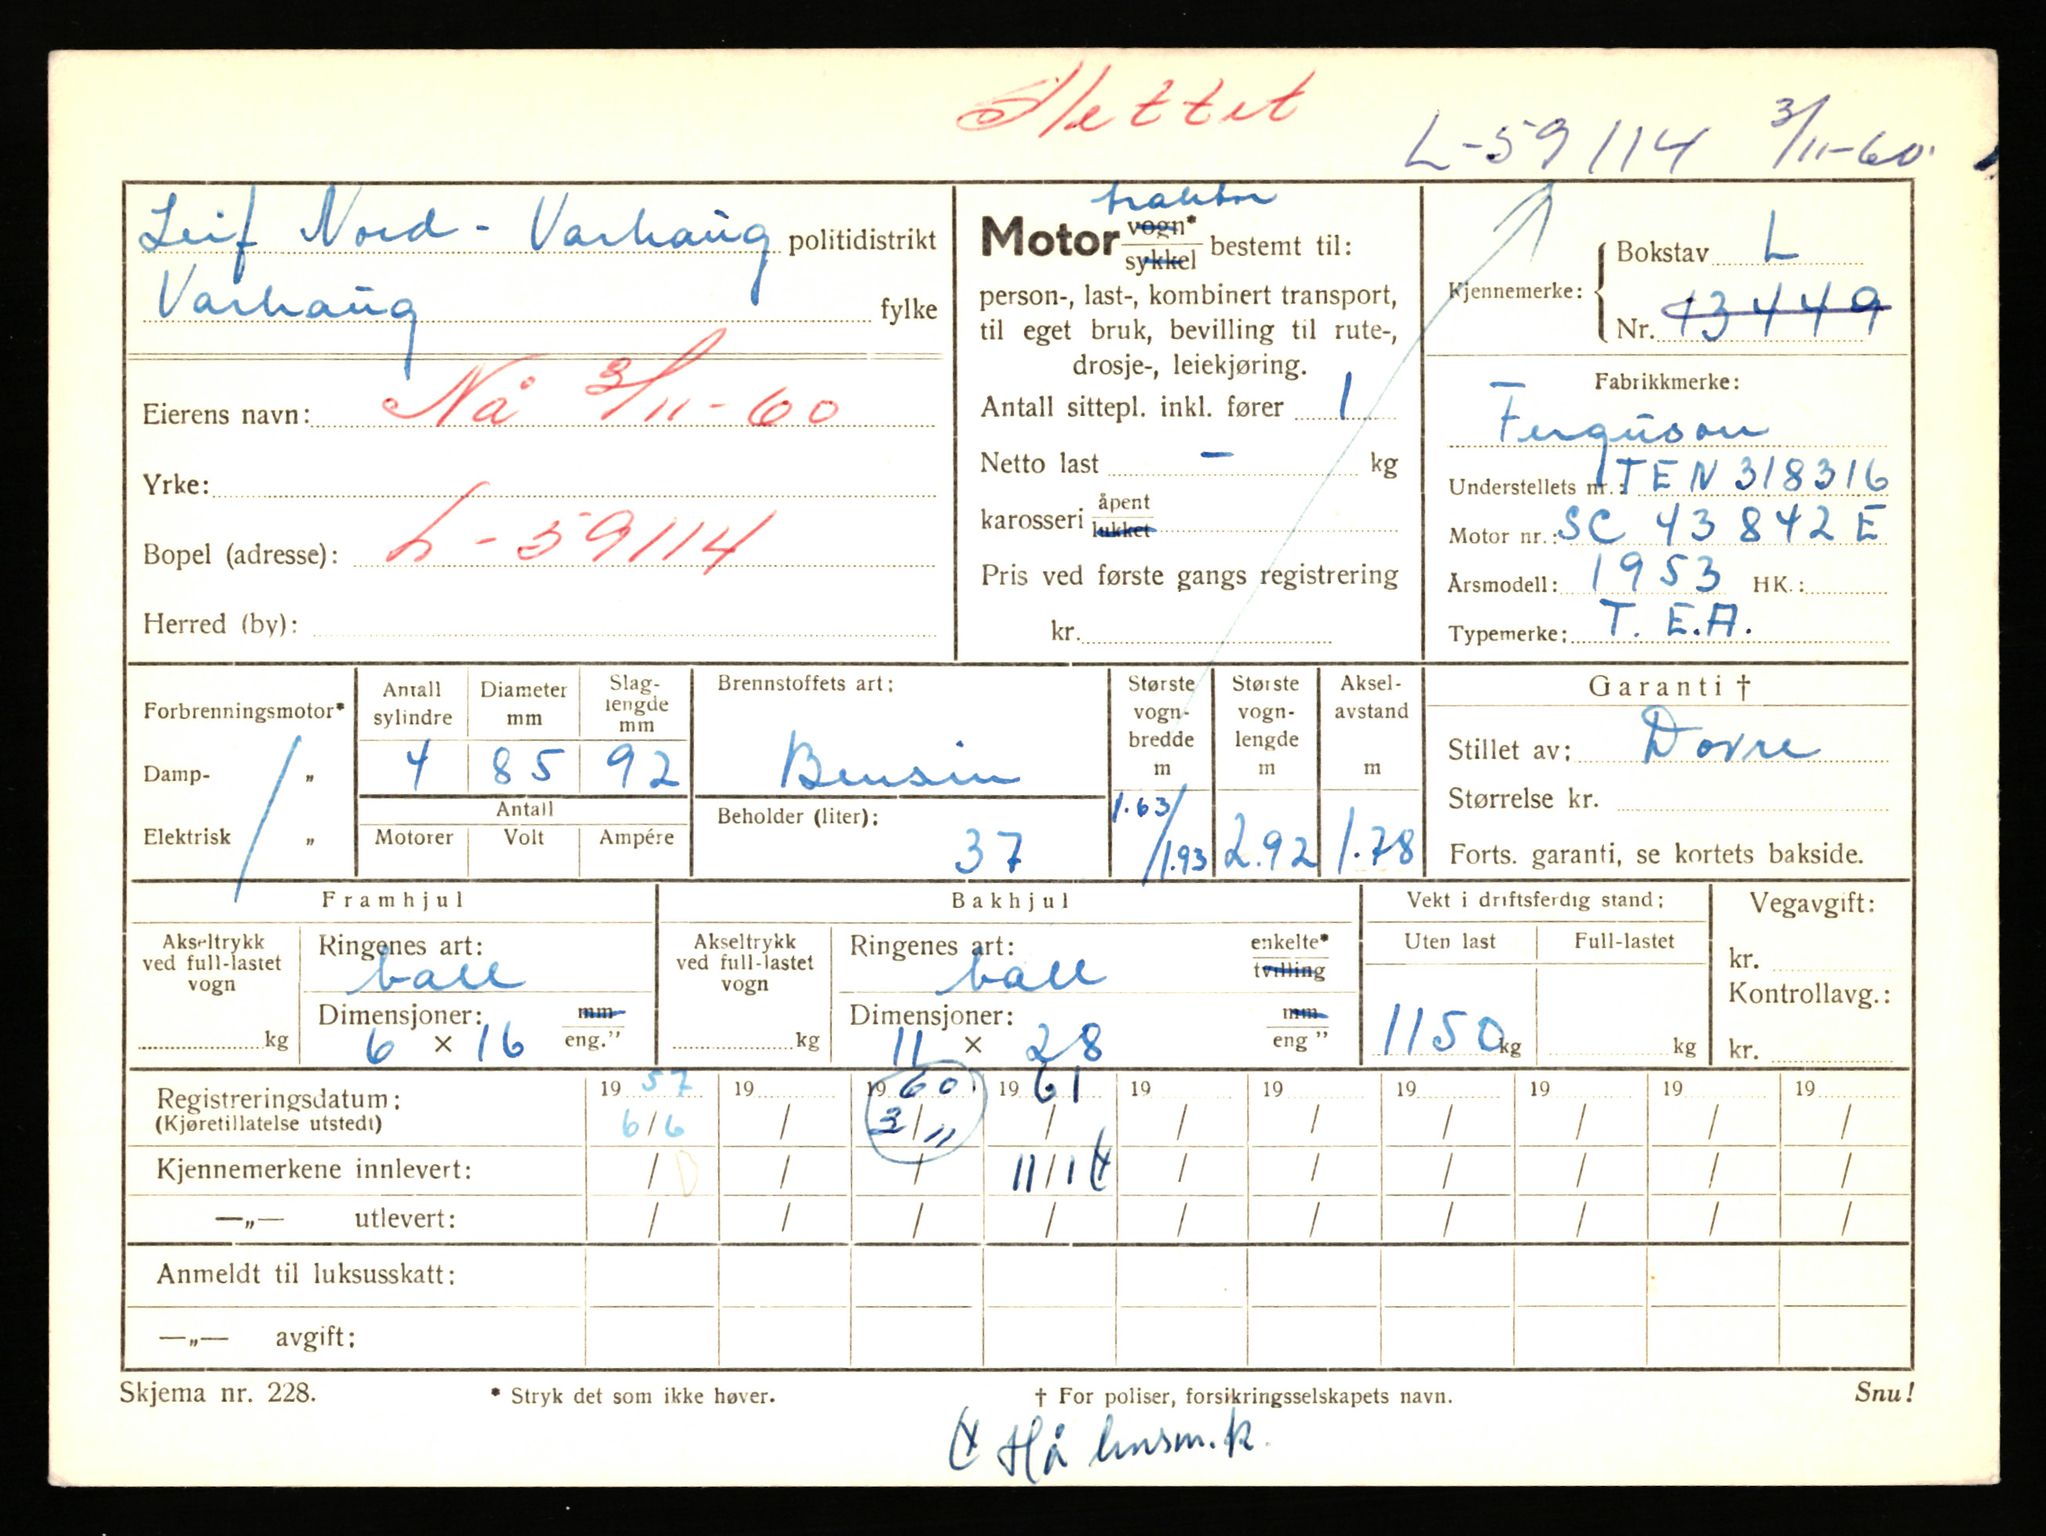 Slettet
L-59114 3/11-60.
Leif Nord-Varhaug politidistrikt
Varhaug fylke
Eierens navn: Nå 3/11-60
Yrke:
Bopel (adresse): L-59114
Herred (by):
traktor
Motor vogn* sykkel bestemt til:
person-, last-, kombinert transport,
til eget bruk, bevilling til rute-,
drosje-, leiekjøring.
Antall sittepl. inkl. fører 1
Netto last – kg
karosseri åpent lukket
Pris ved første gangs registrering
kr.
Kjennemerke: Bokstav L
Nr. 13449
Fabrikkmerke:
Ferguson
Understellets nr.: TEN 318316
Motor nr.: SC 43842 E
Årsmodell: 1953 HK.:
Typemerke: T. E.A.
Forbrenningsmotor*
Damp- „
Elektrisk „
Antall sylindre 4
Diameter mm 85
Slaglengde mm 92
Antall
Motorer Volt Ampére
Brennstoffets art:
Bensin
Beholder (liter):
37
Største vognbredde m 1.63/1.93
Største vognlengde m 2.92
Akselavstand m 1.78
Garanti †
Stillet av: Dovre
Størrelse kr.
Forts. garanti, se kortets bakside.
Framhjul
Akseltrykk ved full-lastet vogn kg
Ringenes art:
ball
Dimensjoner: mm
6 × 16 eng.”
Bakhjul
Akseltrykk ved full-lastet vogn kg
Ringenes art: enkelte*
ball tvilling
Dimensjoner: mm
11 × 28 eng ”
Vekt i driftsferdig stand:
Uten last Full-lastet
1150 kg kg
Vegavgift:
kr.
Kontrollavg.:
kr.
Registreringsdatum: 19 57 19 19 60. 19 61 19 19 19 19 19 19
(Kjøretillatelse utstedt) 6/6 / 3/11 / / / / / / /
Kjennemerkene innlevert: / / / 11/1 x / / / / / /
—„— utlevert: / / / / / / / / / /
Anmeldt til luksusskatt:
—„— avgift:
Skjema nr. 228. * Stryk det som ikke høver. † For poliser, forsikringsselskapets navn. Snu!
x Hå lensm.k.